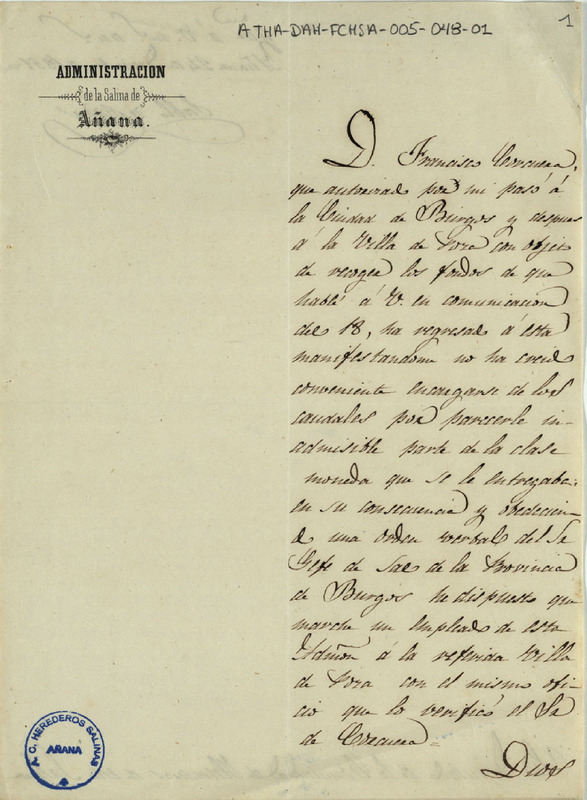 ATHA-DAH-FCHSA-005-048-01
1
ADMINISTRACION
de la Salina de
Añana.
D. Francisco Corcuera,
que autorizado por mi pasó á
la Ciudad de Burgos y despues
á la Villa de Poza con objeto
de recoger los fondos de que
hablé á V. en comunicacion
del 18, ha regresado á esta
manifestandome no ha creido
conveniente encargarse de los
caudales por parecerle in-
admisible parte de la clase
moneda que se le entregaba;
en su consecuencia y obedecien-
do una orden verbal del Sr
Gefe de Sal de la Provincia
de Burgos he dispuesto que
marche un empleado de esta
Admon á la referida Villa
de Poza con el mismo ofi-
cio que lo verificó el Sr
de Corcuera=
Dios
A.C. HEREDEROS SALINAS
AÑANA